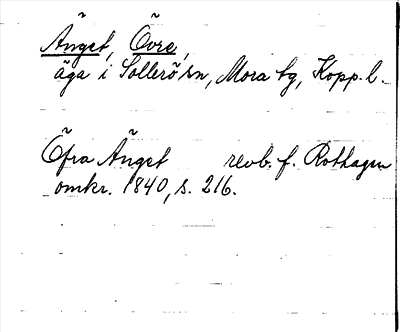 Änget, Övre,
äga i Sollerö sn, Mora tg, Kopp. l.
Öfra Änget revb. f. Rothagen
omkr. 1840, s. 216.